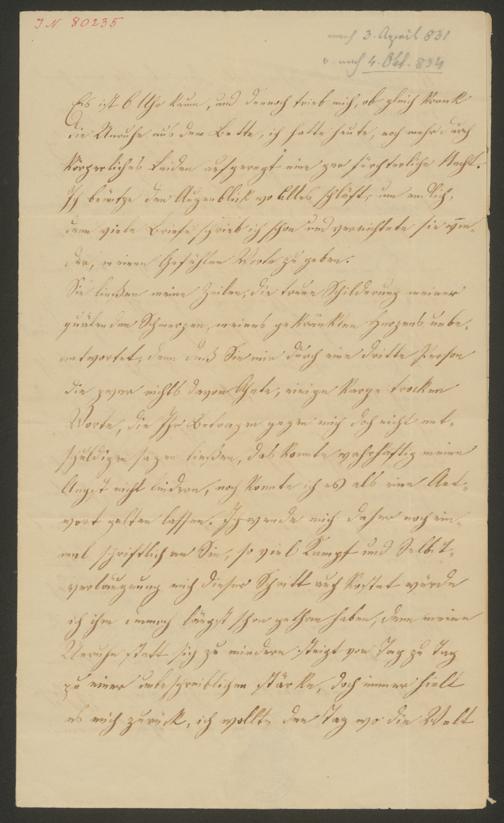 I.N. 80235
nach 3. April 831
v. nach 4. Okt. 834
Es ist 6 Uhr kaum, und dennoch trieb mich, ob gleich krank
die Unruhe aus dem Bette, ich hatte heute, noch mehr durch
körperliches Leiden aufgeregt eine gar fürchterliche Nacht.
Ich benütze den Augenblick wo Alles schläft, um endlich,
denn viele Briefe schrieb ich schon und vernichtete sie wie-
der, meinen Gefühlen Worte zu geben.
Sie ließen meine Zeilen, die treue Schilderung meiner
quälenden Schmerzen, meines gekränkten Herzens unbe-
antwortet, denn daß Sie mir durch eine dritte Person
die zwar nichts davon , einige karge trockene
Worte, die Ihr Betragen gegen mich doch nicht ent-
schuldigen sagen ließen, das konnte wahrhaftig meine
Angst nicht lindern, noch konnte ich es als eine Ant-
wort gelten lassen. Ich wende mich daher noch ein-
mal schriftlich an Sie, so viel Kampf und Selbst-
verläugnung mich dieser Schritt auch kostet würde
ich ihn dennoch längst schon gethan haben, denn meine
Unruhe statt sich zu mindern steigt von Tag zu Tag
zu einer unbeschreiblichen Stärke, doch immer hielt
es mich zurück, ich wollte den Tag wo die Welt